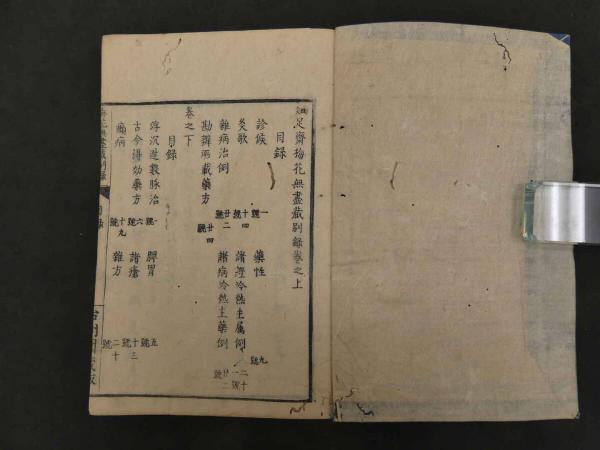 知足齋梅花無盡藏別錄卷之上
目錄
診候 一號 藥性 九號
灸歌 十四號 諸經冷熱主屬例 二十一號
雜病治例 廿二號 諸病冷熱主藥例 廿二號
勘辨所載藥方 廿四號
卷之下
目錄
浮沉遲數脉治 一號 脾胃 五號
古今得効藥方 六號 諸瘡 十三號
痛病 十九號 雜方 二十號
目錄